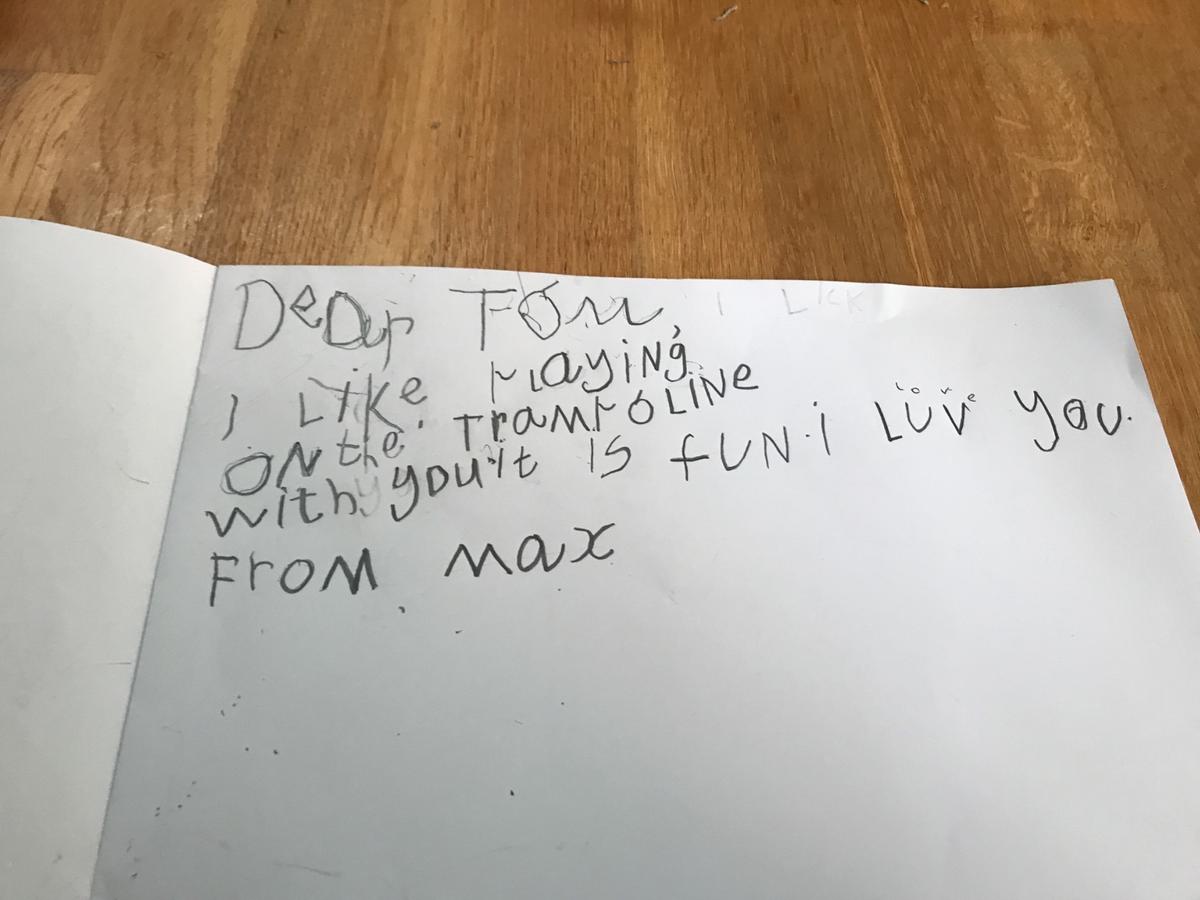 Dear Tom, I LICK
I LIKE Playing
ON the TramPOLINE
with you it IS fUN. I LUV love you.
From max